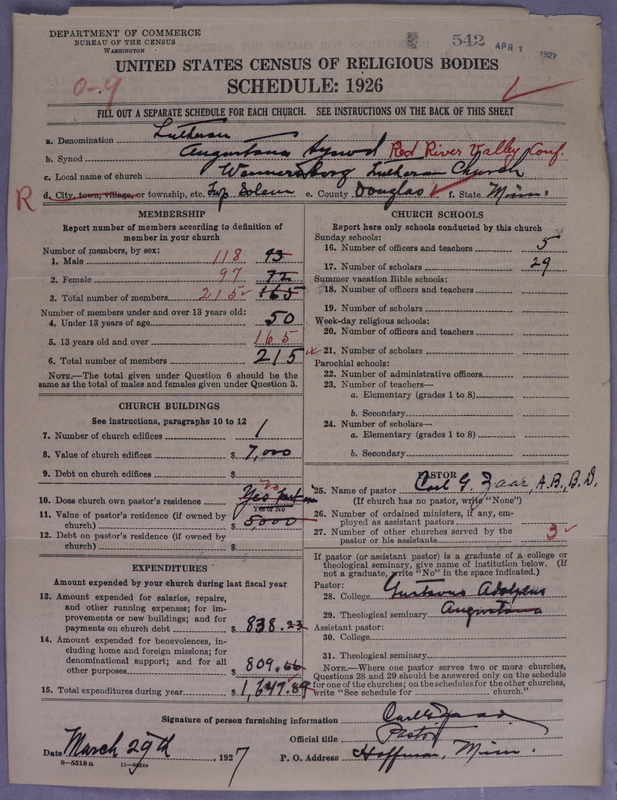 DEPARTMENT OF COMMERCE
BUREAU OF THE CENSUS
WASHINGTON
542 APR 1 1927
UNITED STATES CENSUS OF RELIGIOUS BODIES
SCHEDULE: 1926
0-9
FILL OUT A SEPARATE SCHEDULE FOR EACH CHURCH. SEE INSTRUCTIONS ON THE BACK OF THIS SHEET
a. Denomination Lutheran
b. Synod Augustana Synod Red River Valley Conf.
c. Local name of church Wennersborg Lutheran Church
R d. City, town, village, or township, etc. Twp Solem e. County Douglas f. State Minn.
MEMBERSHIP
Report number of members according to definition of
member in your church
Number of members, by sex:
1. Male 118 93
2. Female 97 72
3. Total number of members 215 165
Number of members under and over 13 years old:
4. Under 13 years of age 50
5. 13 years old and over 165
6. Total number of members 215
NOTE.—The total given under Question 6 should be the
same as the total of males and females given under Question 3.
CHURCH BUILDINGS
See instructions, paragraphs 10 to 12
7. Number of church edifices 1
8. Value of church edifices $ 7,000
9. Debt on church edifices $
10. Does church own pastor's residence Yes
Yes or No
11. Value of pastor's residence (if owned by
church) $ 5,000
12. Debt on pastor's residence (if owned by
church) $
EXPENDITURES
Amount expended by your church during last fiscal year
13. Amount expended for salaries, repairs,
and other running expenses; for im-
provements or new buildings; and for
payments on church debt $ 838.23
14. Amount expended for benevolences, in-
cluding home and foreign missions; for
denominational support; and for all
other purposes $ 809.66
15. Total expenditures during year $ 1,647.89
CHURCH SCHOOLS
Report here only schools conducted by this church
Sunday schools:
16. Number of officers and teachers 5
17. Number of scholars 29
Summer vacation Bible schools:
18. Number of officers and teachers
19. Number of scholars
Week-day religious schools:
20. Number of officers and teachers
21. Number of scholars
Parochial schools:
22. Number of administrative officers
23. Number of teachers—
a. Elementary (grades 1 to 8)
b. Secondary
24. Number of scholars—
a. Elementary (grades 1 to 8)
b. Secondary
PASTOR
25. Name of pastor Carl G. Zaar, A.B., B.D.
(If church has no pastor, write "None")
26. Number of ordained ministers, if any, em-
ployed as assistant pastors
27. Number of other churches served by the
pastor or his assistants 3
If pastor (or assistant pastor) is a graduate of a college or
theological seminary, give name of institution below. (If
not a graduate, write "No" in the space indicated.)
Pastor:
28. College Gustavus Adolphus
29. Theological seminary Augustana
Assistant pastor:
30. College
31. Theological seminary
NOTE.—Where one pastor serves two or more churches,
Questions 28 and 29 should be answered only on the schedule
for one of the churches; on the schedules for the other churches,
write "See schedule for church."
Signature of person furnishing information Carl G. Zaar
Official title Pastor
Date March 29th, 1927 P. O. Address Hoffman, Minn.
8—5318a